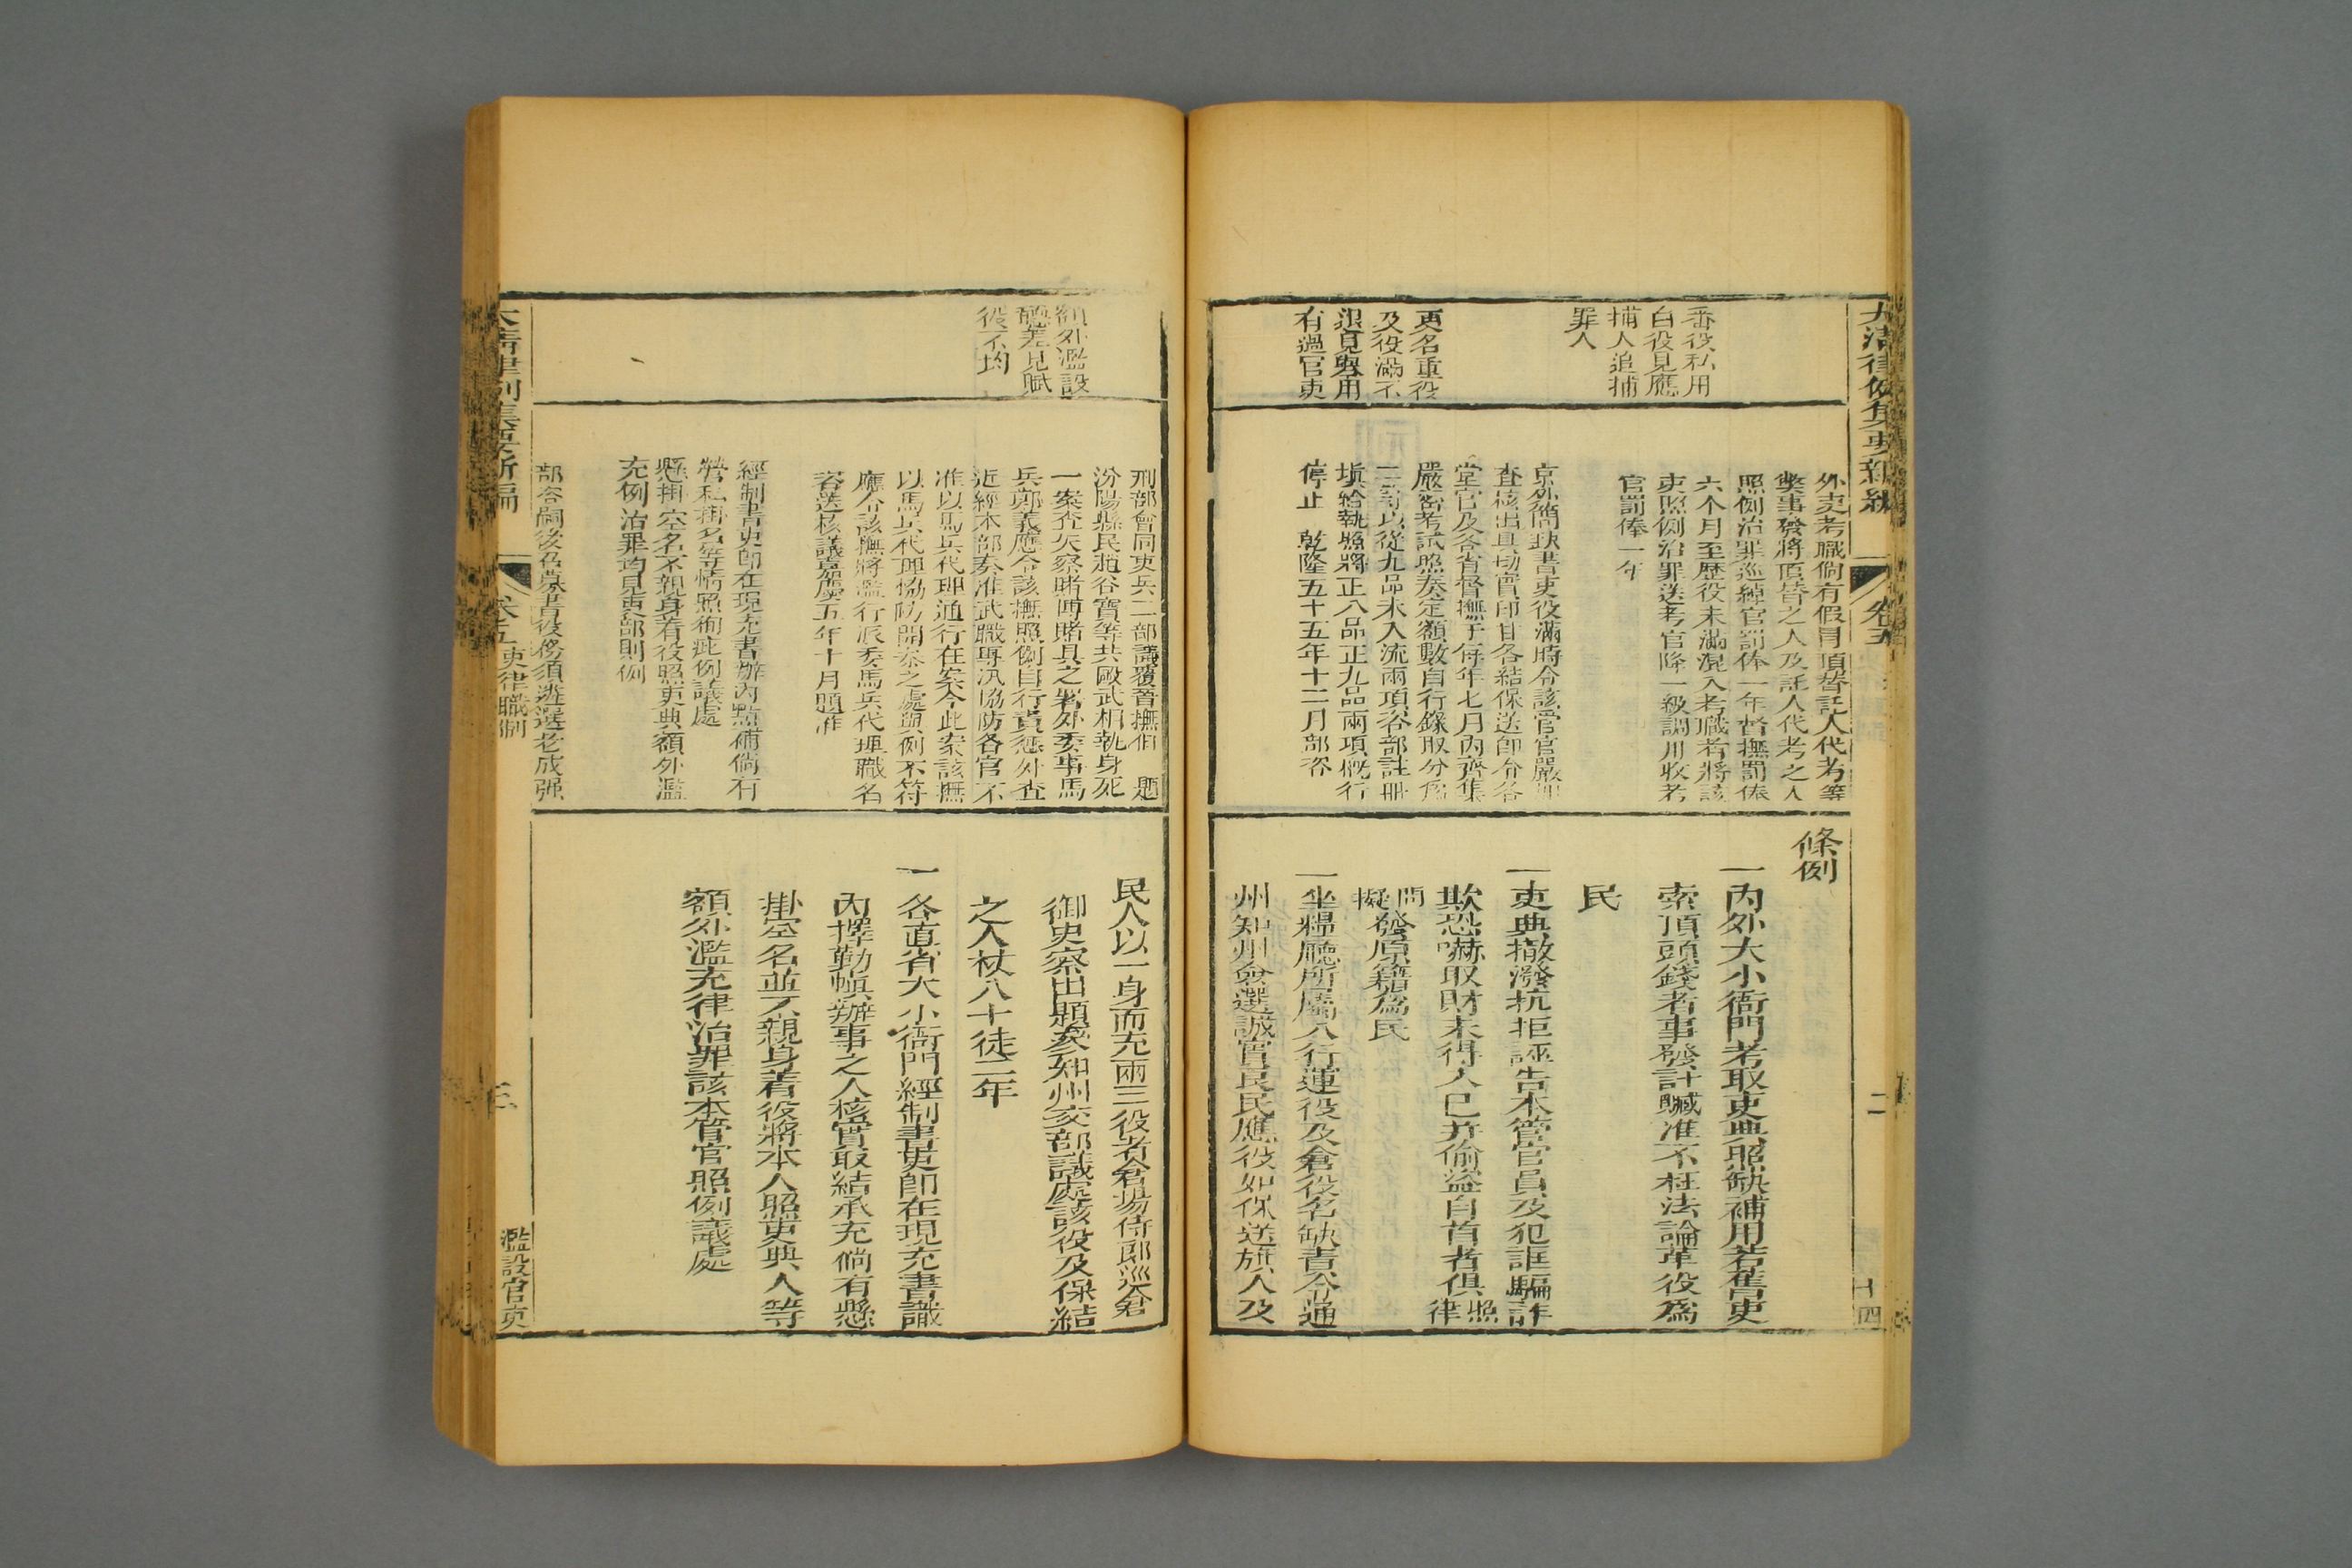 大清律例集要新編
卷五
二
番役私用
白役見應
捕人追捕
罪人
更名重役
及役滿不
退見舉用
有過官吏
外吏考職倘有假冒頂替託人代考等
獘事發將頂替之人及託人代考之人
照例治罪巡綽官罰俸一年督撫罰俸
六个月至歷役未滿混入考職者將該
吏照例治罪送考官降一級調用收考
官罰俸一年
京外簡缺書吏役滿時令該管官嚴加
查核出具切實印甘各結保送卽分各
堂官及各省督撫于每年七月內齊集
嚴密考試照奏定額數自行錄取分爲
二等以從九品未入流兩項咨部註冊
塡給執照將正八品正九品兩項槪行
停止 乾隆五十五年十二月部咨
條例
一內外大小衙門考取吏典照缺補用若舊吏
索頂頭錢者事發計贓准不枉法論革役爲
民
一吏典撤潑抗拒誣告本管官員及犯誆騙詐
欺恐嚇取財未得入已并偷盜自首者俱照律
問擬發原籍爲民
一坐糧廳所屬八行運役及倉役名缺責令通
州知州僉選誠實良民應役如保送旗人及
額外濫設
聽差見賦
役不均
刑部會同吏兵二部議覆晉撫伯 題
汾陽縣民趙谷寶等共毆武相執身死
一案查失察賭博賭具之署外委事馬
兵鄭義應令該撫照例自行責懲外查
近經本部奏准武職專汛協防各官不
准以馬兵代理通行在案今此案該撫
以馬兵代理協防開叅之處與例不符
應令該撫將濫行派委馬兵代理職名
咨送核議嘉慶五年十月題准
經制書吏卽在現充書辦內點補倘有
營私掛名等情照徇庇例議處
懸掛空名不親身着役照吏典額外濫
充例治罪均見吏部則例
部咨嗣後召募書役務須遴選老成强
民人以一身而充兩三役者倉場侍郎巡倉
御史察出題叅知州交部議處該役及保結
之人杖八十徒二年
一各直省大小衙門經制書吏卽在現充書識
內擇勤愼辦事之人核實取結承充倘有懸
掛空名並不親身着役將本人照吏典人等
額外濫充律治罪該本管官照例議處
大清律例集要新編
卷五 吏律職制
三
濫設官吏